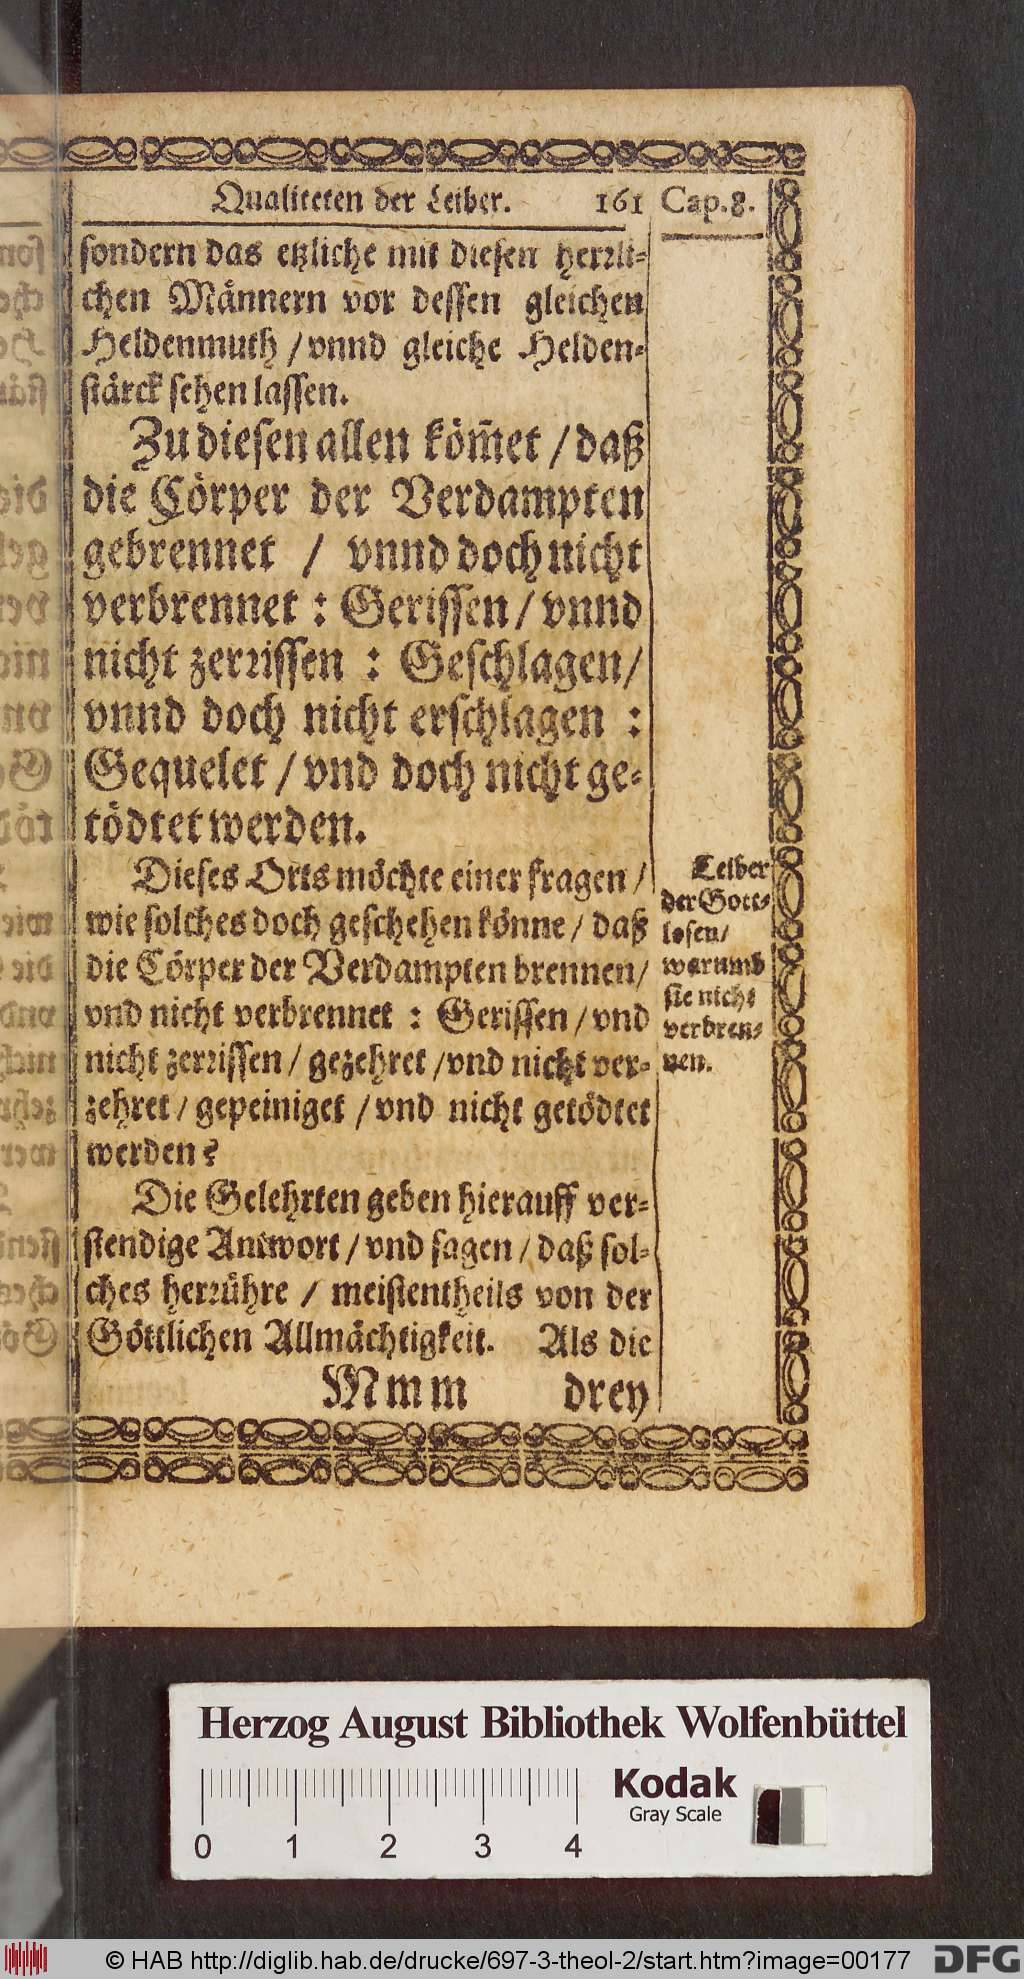 Qualiteten der Leiber. 161 Cap. 8.
sondern das etzliche mit diesen herrli-
chen Männern vor dessen gleichen
Heldenmuth / vnnd gleiche Helden-
stärck sehen lassen.
Zu diesen allen köm̃et / daß
die Cörper der Verdampten
gebrennet / vnnd doch nicht
verbrennet : Gerissen / vnnd
nicht zerrissen : Geschlagen /
vnnd doch nicht erschlagen :
Gequelet / vnd doch nicht ge-
tödtet werden.
Dieses Orts möchte einer fragen /
wie solches doch geschehen könne / daß
die Cörper der Verdampten brennen /
vnd nicht verbrennet : Gerissen / vnd
nicht zerrissen / gezehret / vnd nicht ver-
zehret / gepeiniget / vnd nicht getödtet
werden?
Leiber
der Gott-
losen /
warumb
sie nicht
verbren-
nen.
Die Gelehrten geben hierauff ver-
stendige Antwort / vnd sagen / daß sol-
ches herrühre / meistentheils von der
Göttlichen Allmächtigkeit. Als die
Mmm drey
Herzog August Bibliothek Wolfenbüttel
Kodak
Gray Scale
0 1 2 3 4
© HAB http://diglib.hab.de/drucke/697-3-theol-2/start.htm?image=00177
DFG